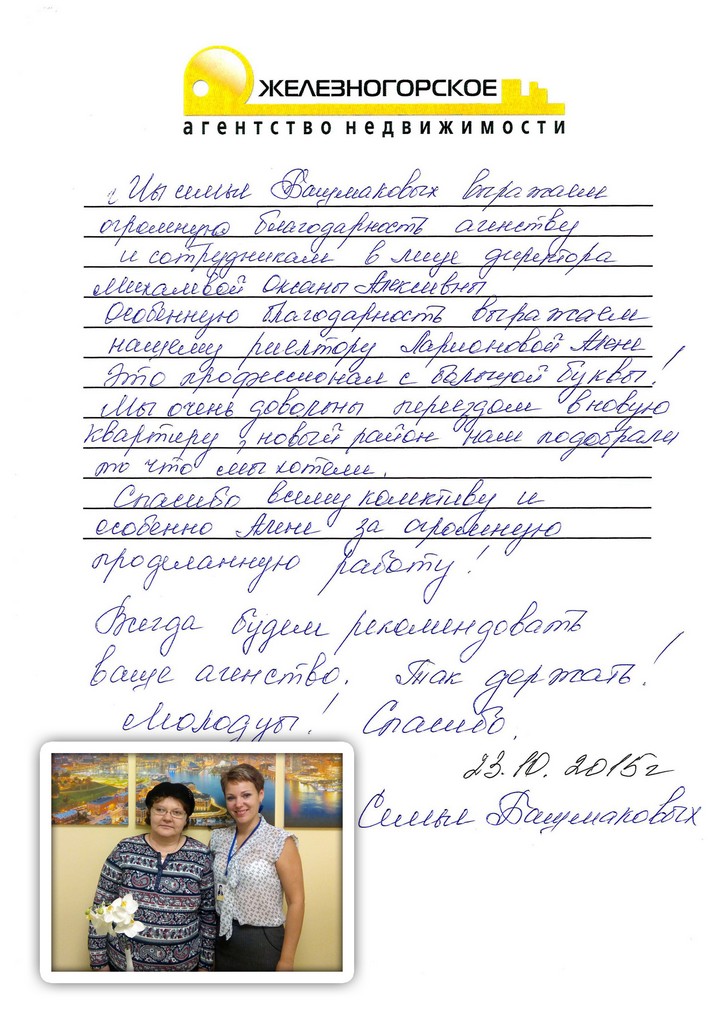 ЖЕЛЕЗНОГОРСКОЕ
агентство недвижимости
Мы семья Башмаковых выражаем
огромную благодарность агенству
и сотрудникам в лице директора
Михалевой Оксаны Алексевны
Особенную благодарность выражаем
нашему риелтору Ларионовой Алене!
Это профессионал с большой буквы!
Мы очень довольны переездом в новую
квартиру, новый район нам подобрали
то что мы хотели.
Спасибо всему колективу и
особенно Алене за огромную
проделанную работу!
Всегда будем рекомендовать
ваше агенство. Так держать!
Молодцы! Спасибо.
23.10.2015г
Семья Башмаковых